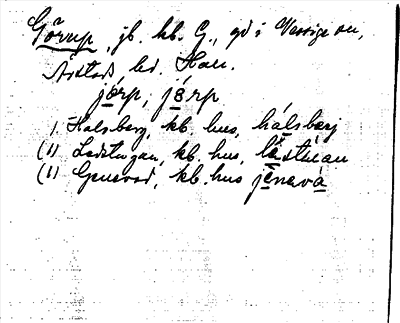 Görup, jb. kb. G., gd i Vessige sn,
Årstads hd. Hall.
jørp, jørp
1. Halsberg, kb. hus, hálsbærj
(1) Ladstugan, kb. hus, lastúan
(1) Genevad, kb. hus jenavá